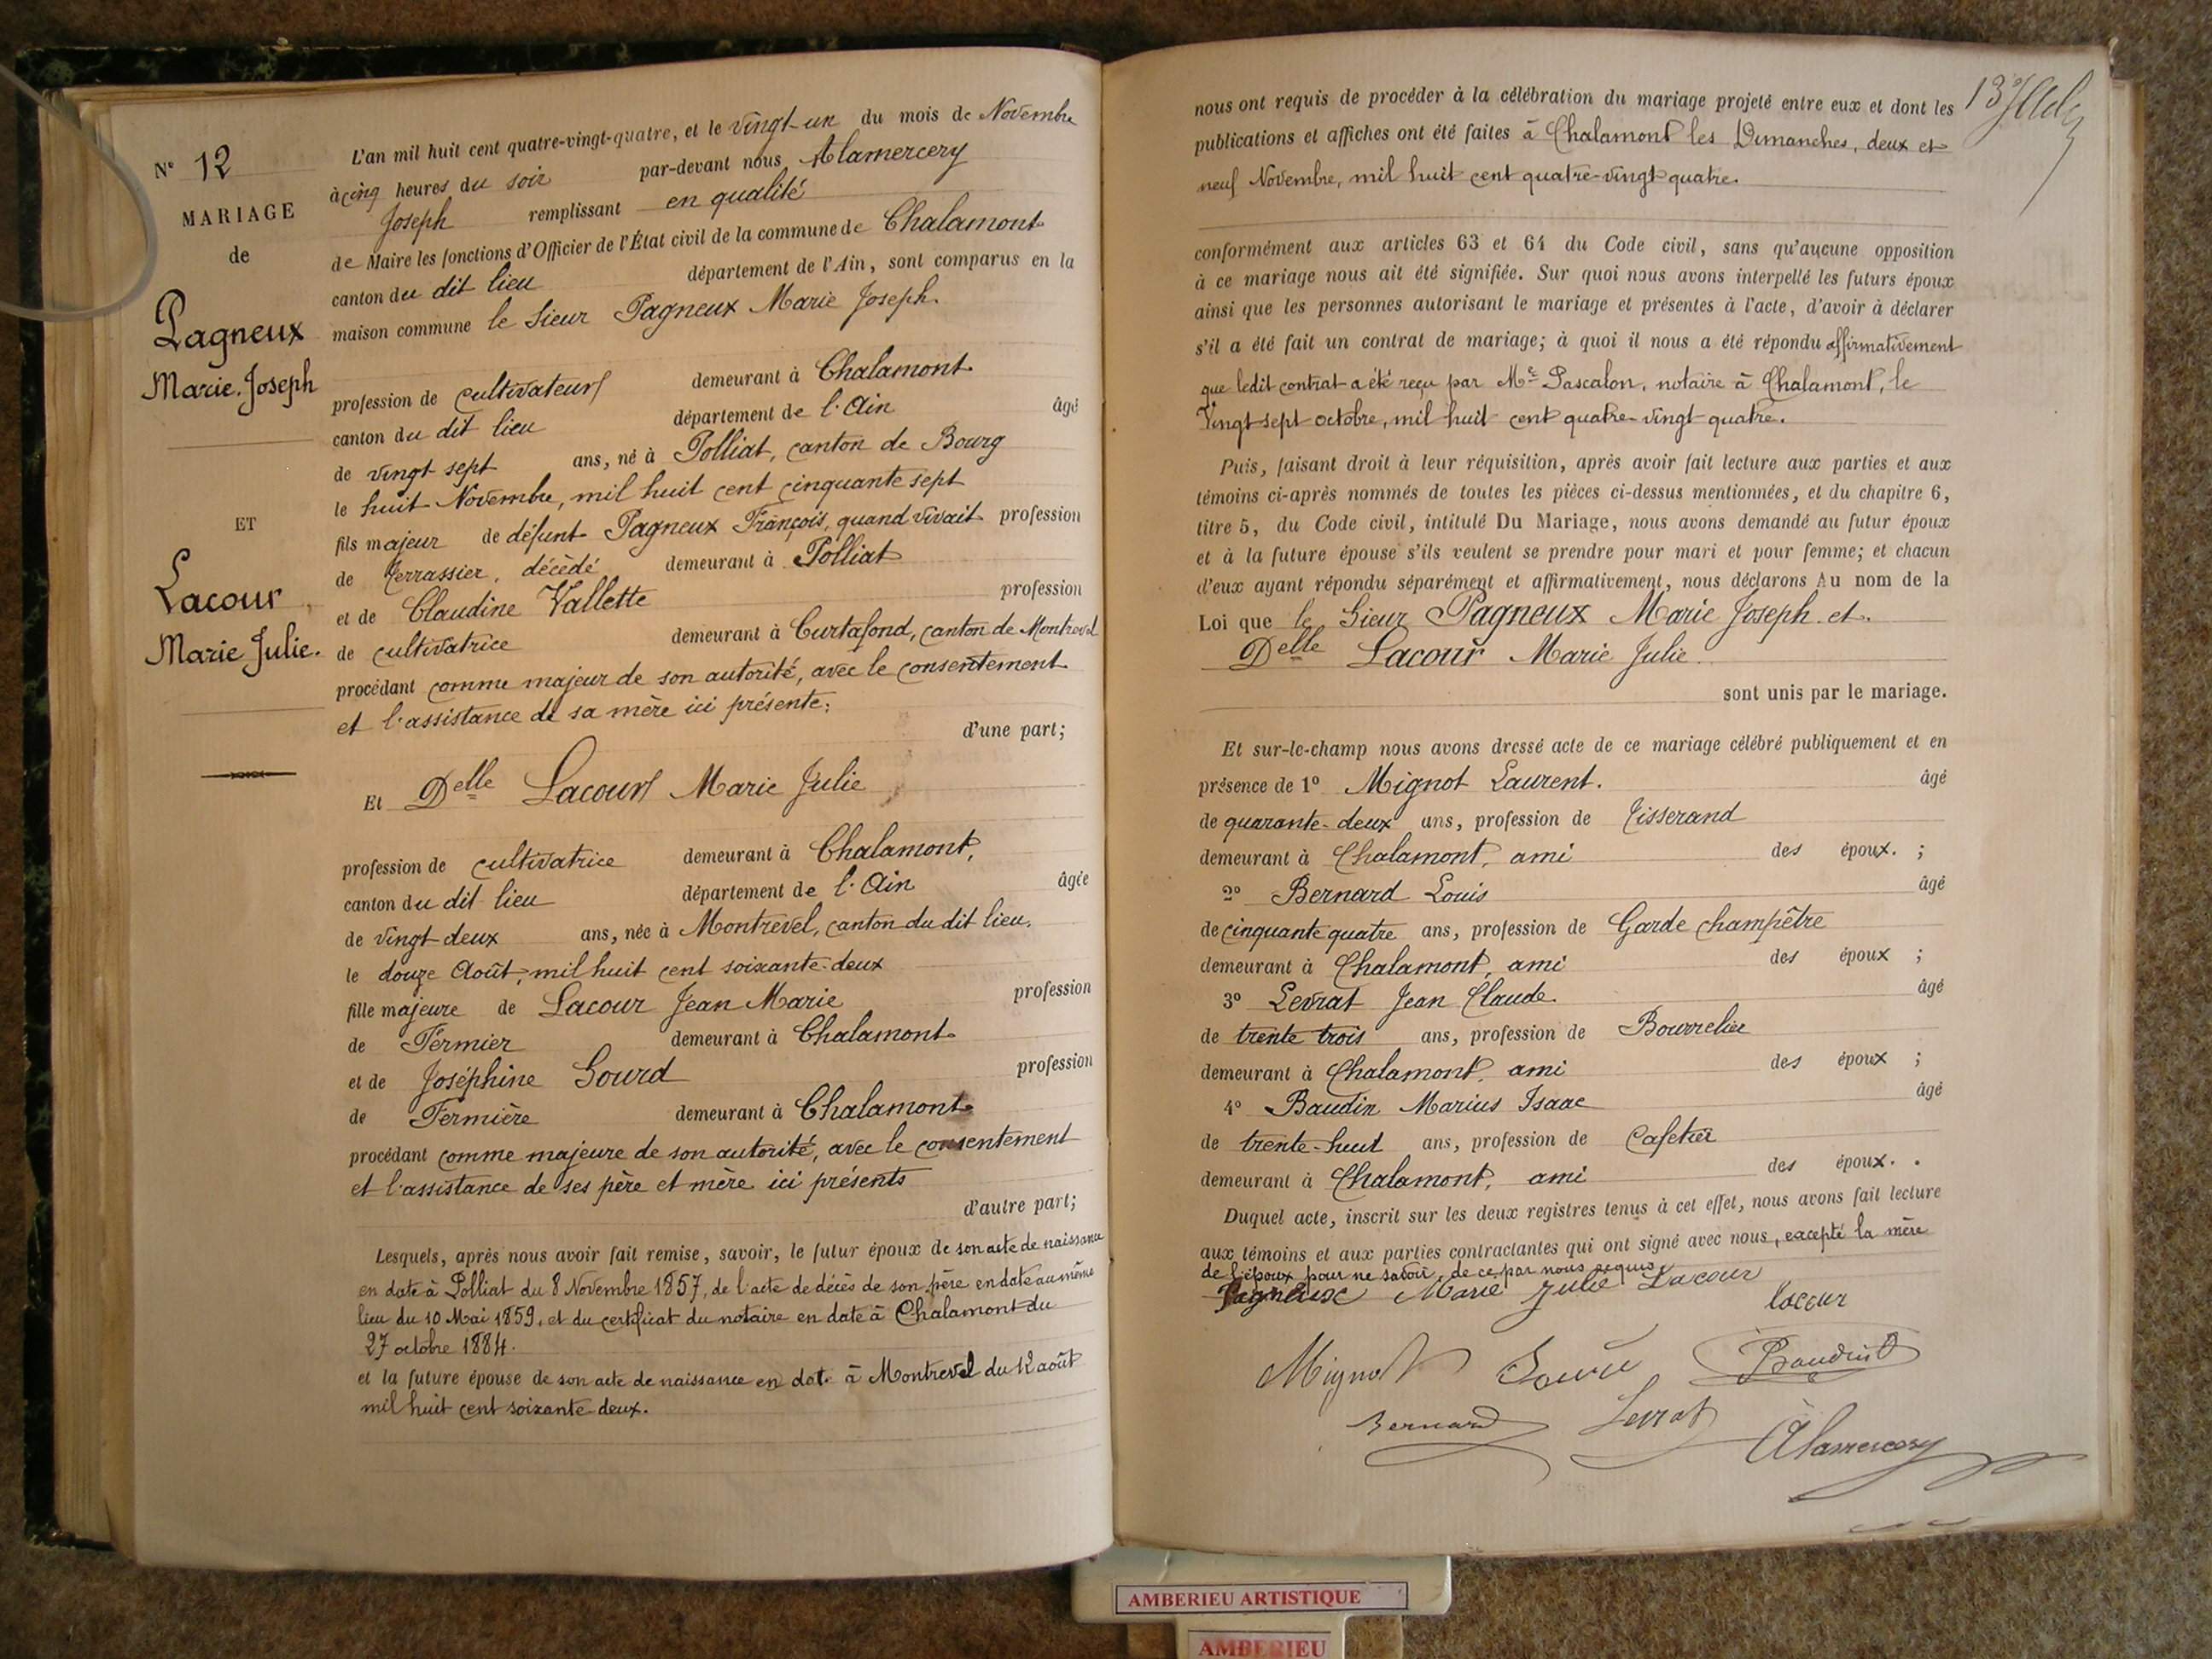 N° 12
MARIAGE
de
Pagneux
Marie Joseph
ET
Lacour
Marie Julie.
L'an mil huit cent quatre-vingt-quatre, et le vingt-un du mois de Novembre
à cinq heures du soir par-devant nous Alamercery
Joseph remplissant en qualité
de Maire les fonctions d'Officier de l'État civil de la commune de Chalamont
canton du dit lieu département de l'Ain, sont comparus en la
maison commune le Sieur Pagneux Marie Joseph.
profession de cultivateur demeurant à Chalamont
canton du dit lieu département de l'Ain âgé
de vingt sept ans, né à Polliat, canton de Bourg
le huit Novembre, mil huit cent cinquante sept
fils majeur de défunt Pagneux François, quand vivait profession
de Terrassier, décédé demeurant à Polliat
et de Claudine Vallette profession
de cultivatrice demeurant à Curtafond, canton de Montrevel
procédant comme majeur de son autorité, avec le consentement
et l'assistance de sa mère ici présente;
d'une part;
Et Delle Lacour Marie Julie
profession de cultivatrice demeurant à Chalamont,
canton du dit lieu département de l'Ain âgée
de vingt deux ans, née à Montrevel, canton du dit lieu,
le douze Août, mil huit cent soixante-deux
fille majeure de Lacour Jean Marie profession
de Fermier demeurant à Chalamont
et de Joséphine Gourd profession
de Fermière demeurant à Chalamont
procédant comme majeure de son autorité, avec le consentement
et l'assistance de ses père et mère ici présents
d'autre part;
Lesquels, après nous avoir fait remise, savoir, le futur époux de son acte de naissance
en date à Polliat du 8 Novembre 1857, de l'acte de décès de son père en date au même
lieu du 10 Mai 1859, et du certificat du notaire en date à Chalamont du
27 octobre 1884.
et la future épouse de son acte de naissance en dat. à Montrevel du 12 août
mil huit cent soixante deux.
nous ont requis de procéder à la célébration du mariage projeté entre eux et dont les
publications et affiches ont été faites à Chalamont les Dimanches, deux et
neuf Novembre, mil huit cent quatre-vingt quatre.
conformément aux articles 63 et 64 du Code civil, sans qu'aucune opposition
à ce mariage nous ait été signifiée. Sur quoi nous avons interpellé les futurs époux
ainsi que les personnes autorisant le mariage et présentes à l'acte, d'avoir à déclarer
s'il a été fait un contrat de mariage; à quoi il nous a été répondu affirmativement
que ledit contrat a été reçu par Me Pascalon, notaire à Chalamont, le
Vingt sept octobre, mil huit cent quatre-vingt quatre.
Puis, faisant droit à leur réquisition, après avoir fait lecture aux parties et aux
témoins ci-après nommés de toutes les pièces ci-dessus mentionnées, et du chapitre 6,
titre 5, du Code civil, intitulé Du Mariage, nous avons demandé au futur époux
et à la future épouse s'ils veulent se prendre pour mari et pour femme; et chacun
d'eux ayant répondu séparément et affirmativement, nous déclarons Au nom de la
Loi que le Sieur Pagneux Marie Joseph et.
Delle Lacour Marie Julie
sont unis par le mariage.
Et sur-le-champ nous avons dressé acte de ce mariage célébré publiquement et en
présence de 1° Mignot Laurent. âgé
de quarante-deux ans, profession de Tisserand
demeurant à Chalamont, ami des époux. ;
2° Bernard Louis âgé
de cinquante quatre ans, profession de Garde champêtre
demeurant à Chalamont, ami des époux ;
3° Levrat Jean Claude. âgé
de trente trois ans, profession de Bourrelier
demeurant à Chalamont, ami des époux ;
4° Baudin Marius Isaac âgé
de trente-huit ans, profession de Cafetier
demeurant à Chalamont, ami des époux. .
Duquel acte, inscrit sur les deux registres tenus à cet effet, nous avons fait lecture
aux témoins et aux parties contractantes qui ont signé avec nous, excepté la mère
de l'époux pour ne savoir, de ce par nous requis.
Pagneux Marie Julie Lacour
Lacour
Mignot Baudin
Bernard Levrat
Alamercery
AMBERIEU ARTISTIQUE
AMBERIEU